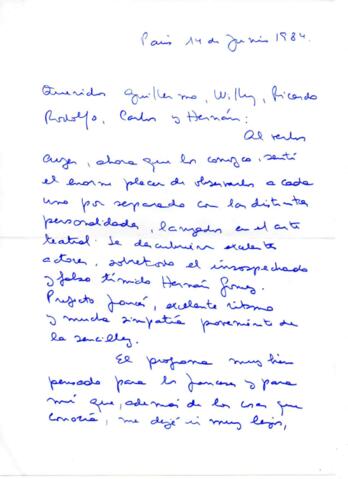 Paris 14 de Junio 1984.
Queridos Guillermo, Willy, Ricardo
Rodolfo, Carlos y Hernán:
Al verlos
ayer, ahora que los conozco, sentí
el enorme placer de observarlos a cada
uno por separado con las distintas
personalidades, lanzados en el arte
teatral. Se descubrieron excelentes
actores, sobretodo el insospechado
y falso tímido Hernán Gomez.
Perfecto francés, excelente ritmo
y mucha simpatía proveniente de
la sencillez.
El programa muy bien
pensado para los franceses y para
mí que, además de las cosas que
conocía, me dejé ir muy lejos,